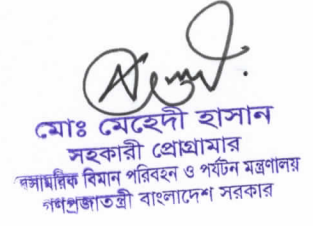 মোঃ মেহেদী হাসান
সহকারী প্রোগ্রামার
বেসামরিক বিমান পরিবহন ও পর্যটন মন্ত্রণালয়
গণপ্রজাতন্ত্রী বাংলাদেশ সরকার